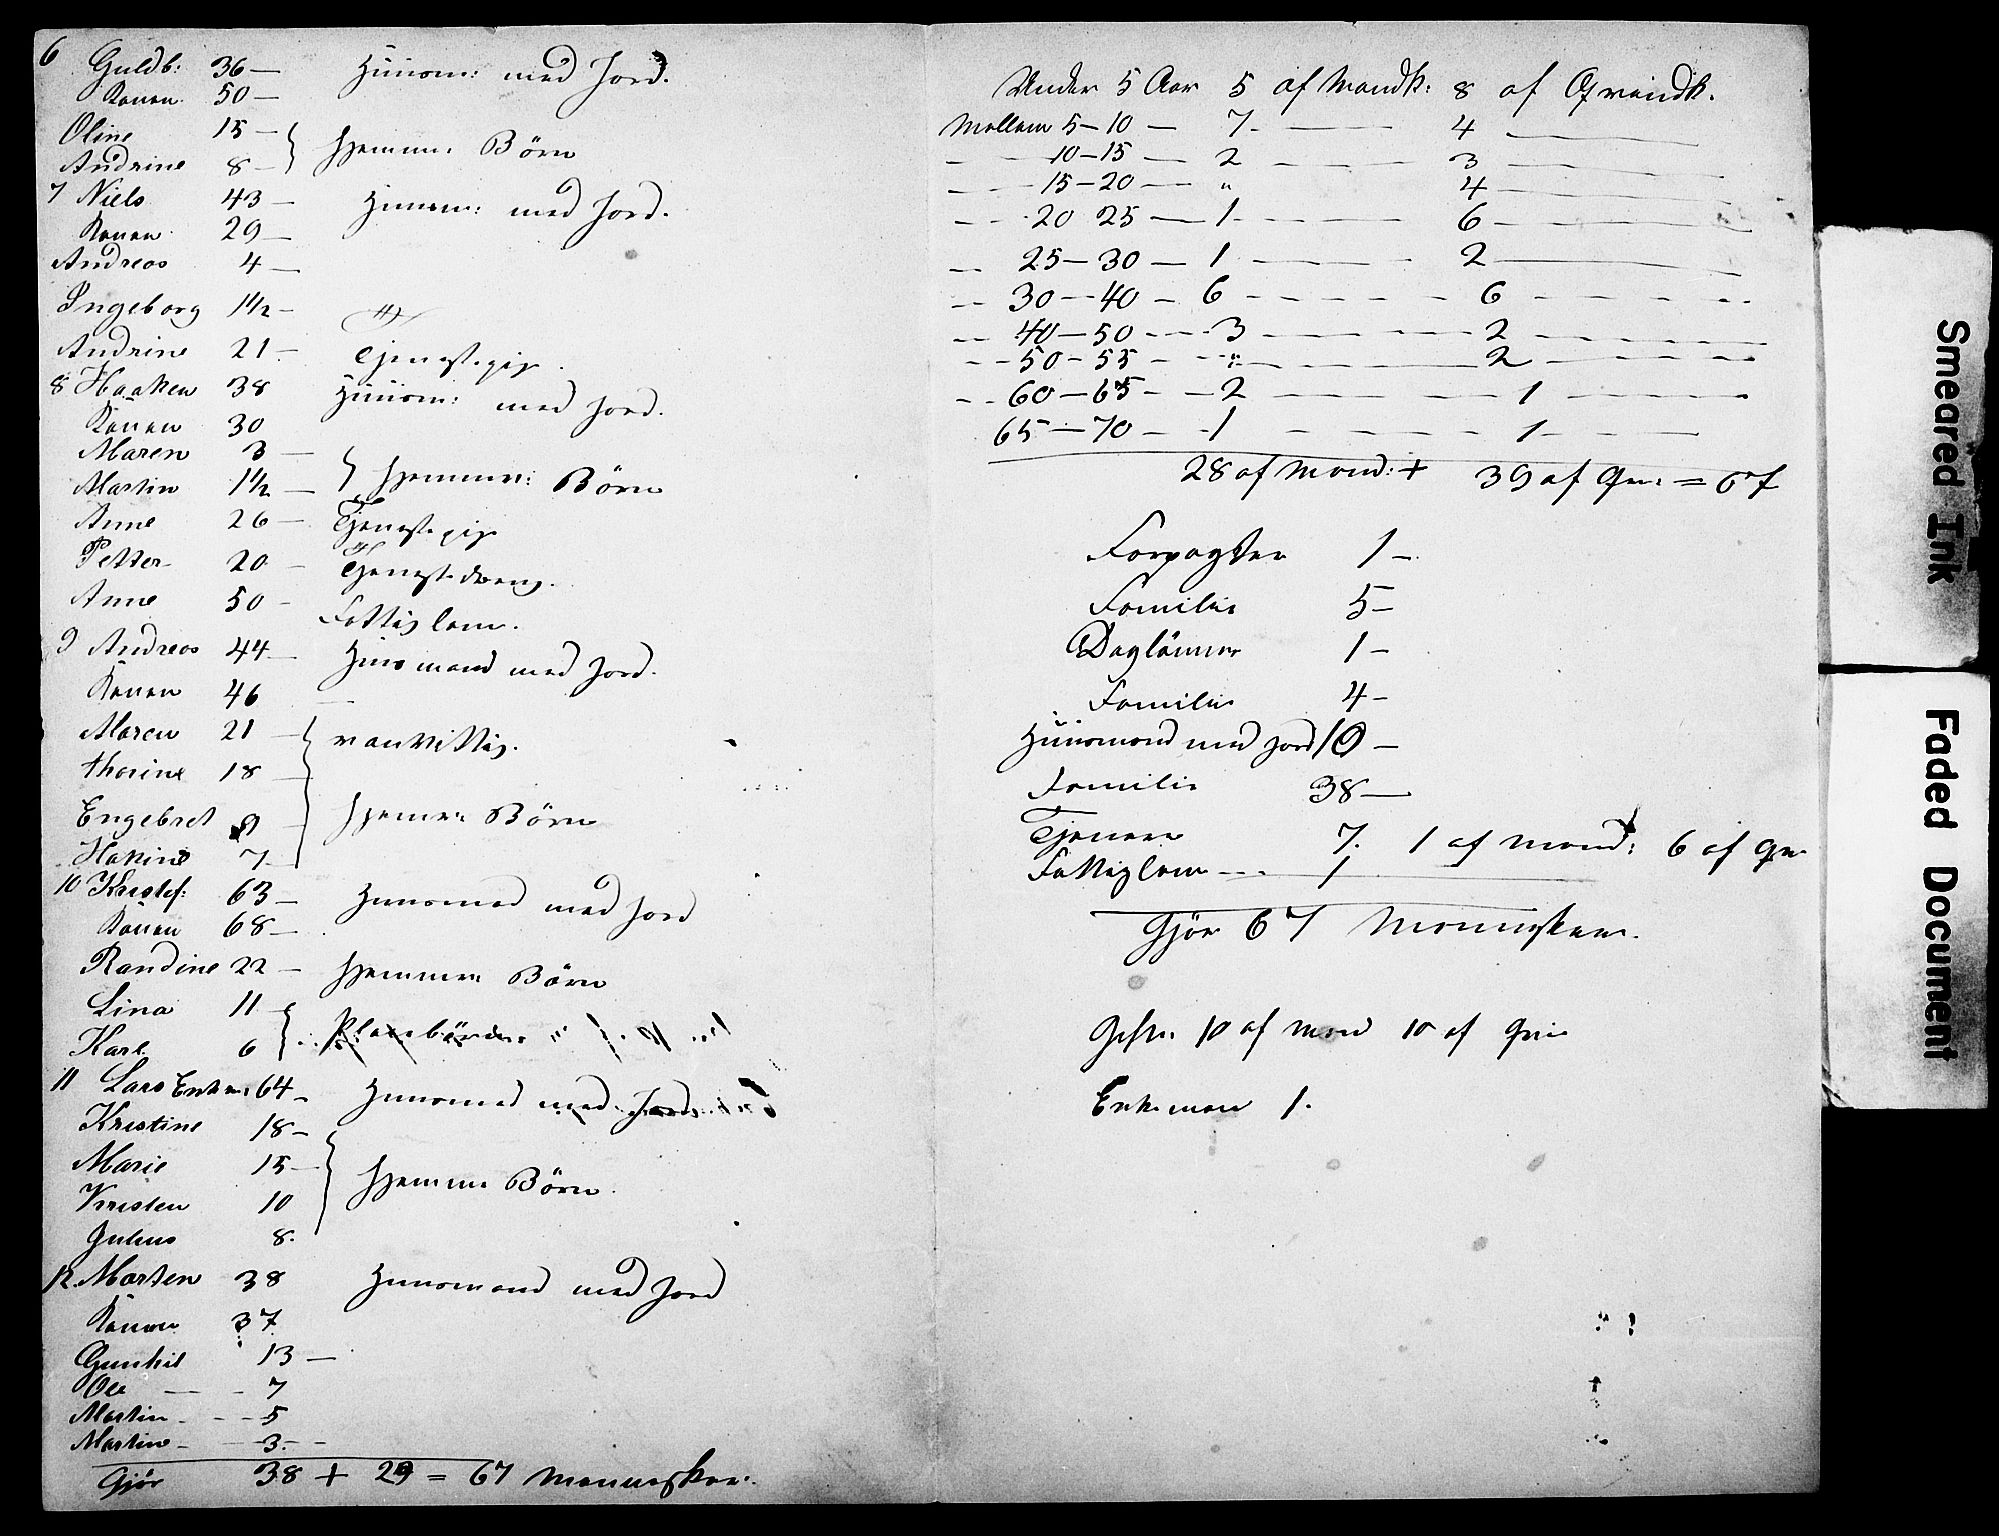 6 Guldb: 36 — Huusm: med Jord.
Konen 50 —
Oline 15 —
Andrine 8 — } hjemme Börn
7 Niels 43 — Huusm: med Jord.
Konen 29 —
Andreas 4 —
Ingeborg 1½ —
Andrine 21 — Tjenestepige
8 Haaken 38 Huusm: med Jord.
Konen 30
Maren 3 —
Martin 1½ — } hjemme: Börn
Anne 26 — Tjenestepige
Petter 20 — Tjenestedreng.
Anne 50 — Fattiglem.
9 Andreas 44 — Huusmand med Jord.
Konen 46 —
Maren 21 — vanvittig.
thorine 18 —
Engebret 9 — hjemme: Börn
Hakine 7 —
10 Kristef: 63 — Huusmad med Jord
Konen 68 —
Randine 22 — hjemme: Börn
Lina 11 —
Karl 6 }
11 Lars Enkem: 64 — Huusmad med Jord
Kristine 18 —
Marie 15 — hjemme Börn.
Kristen 10
Julius 8.
12. Marten 38 Huusmand med Jord
Konen 37
Gunhil 13 —
Ole — - 7
Martin - - - 5
Martine - — 3. - -
Gjör 38 + 29 = 67 Mennesker.
Under 5 Aar 5 af Mandk: 8 af Qvindk.
Mellem 5–10 — 7 — 4 —
— 10–15 — 2 — 3 —
— 15–20 — " 4 —
— 20 25 — 1 — 6 —
— 25–30 — 1 — 2 —
— 30–40 — 6 — 6 —
— 40–50 — 3 — 2 —
— 50–55 — " — 2 —
— 60–65 — 2 — 1 —
65–70 — 1 — 1 —
28 af Mand: + 39 af Qv: = 67
Forpagter 1 —
Familie 5 —
Daglönner 1 —
Familie 4 —
Huusmænd med Jord 10 —
Familie 38 —
Tjenere 7. 1 af mand: 6 af Qv
Fattiglem - - - 1
Gjör 67 Mennesker.
Gifte 10 af Mand 10 af Qvi
Enkeman 1.
Smeared Ink
Faded Document